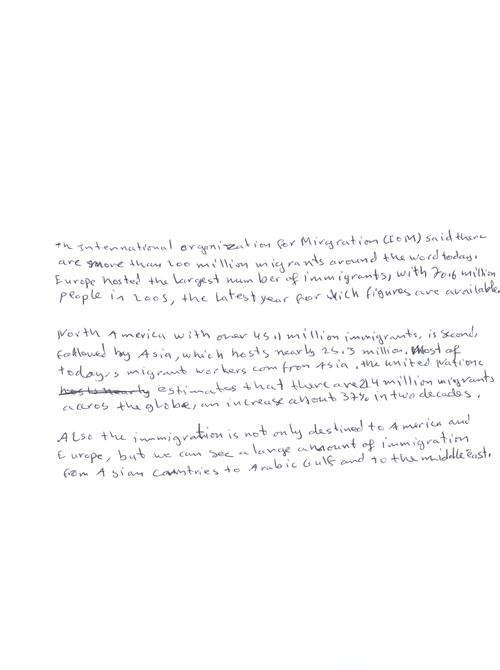 th International organization for Mirgration (IOM) said there
are more than 200 million migrants around the word today.
Europe hosted the largest number of immigrants, with 70.6 million
people in 2005, the latest year for which figures are available.
North America with over 45.1 million immigrants, is second,
followed by Asia, which hosts nearly 25.3 million. Most of
today,s migrant workers com from Asia. the united Nations
hosts nearly estimates that there are 214 million migrants
acros the globe, an increase about 37% in two decades.
Also the immigration is not only destined to America and
Europe, but we can see a large amount of immigration
from Asian Countries to Arabic Gulf and to the middle east.